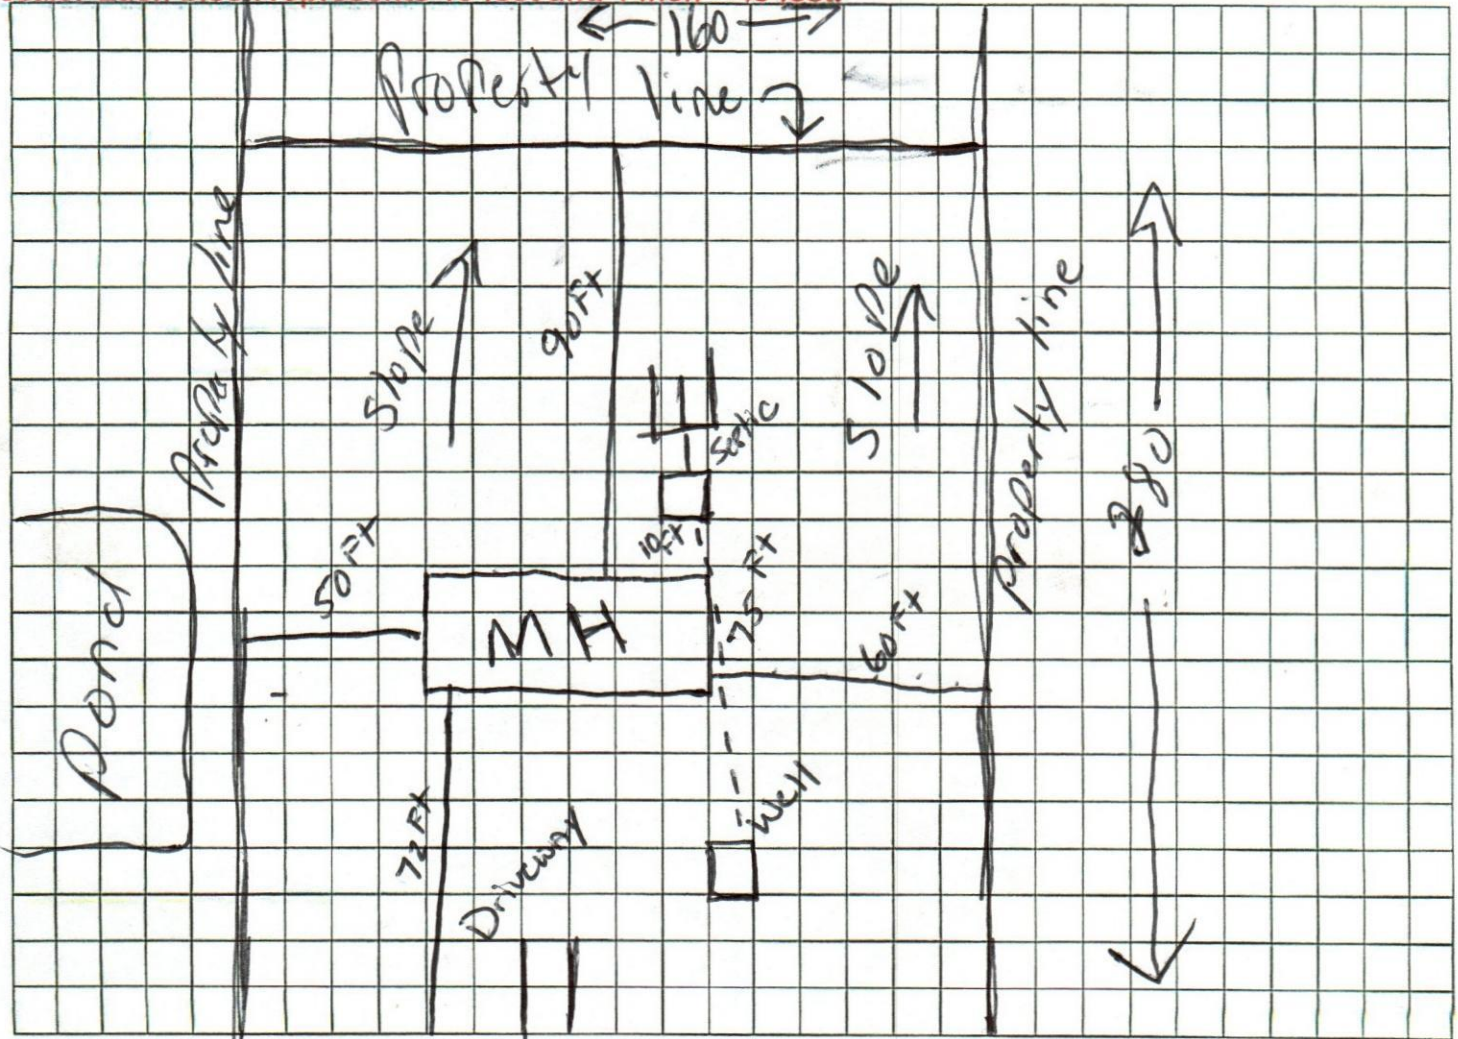 160
Property line
Property line
Slope
90Ft
Slope
Property line
280
Septic
10Ft
50Ft
75 Ft
MH
60Ft
Pond
72Ft
Driveway
Well